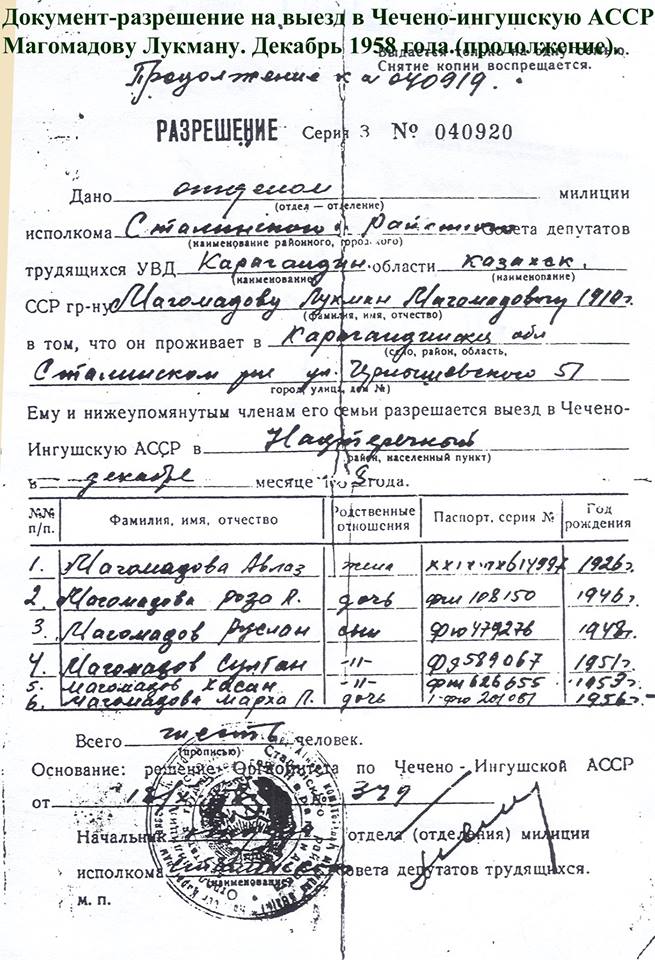 Документ-разрешение на выезд в Чечено-ингушскую АССР
Магомадову Лукману. Декабрь 1958 года.(продолжение).
Выдается только на одну семью.
Снятие копии воспрещается.
Продолжение к № 040919.
РАЗРЕШЕНИЕ Серия З № 040920
Дано отделом милиции
(отдел — отделение)
исполкома Сталинского Совета депутатов
(наименование районного, городского)
трудящихся УВД Карагандин. области казахск.
(наименование) (наименование)
ССР гр-ну Магомадову Лукман Магомадовичу 1910г.
(фамилия, имя, отчество)
в том, что он проживает в Карагандинской обл
(село, район, область,
Сталинском р-не ул. Чернышевского 51
город, улица, дом №)
Ему и нижеупомянутым членам его семьи разрешается выезд в Чечено-
Ингушскую АССР в Надтеречный
(район, населенный пункт)
в декабре месяце 19 года.
№№ п/п. Фамилия, имя, отчество Родственные отношения Паспорт, серия № Год рождения
1. Магомадова Авлаз жена 1926г.
2. Магомадова Роза дочь 108150 1946г.
3. Магомадов Руслан сын фю 479276 1948г.
4. Магомадов Султан -"- 589067 1951г.
5. Магомадов Хасан -"- 626655
6. Магомадова Марха дочь 1956г.
Всего шесть человек.
(прописью)
Основание: решение Оргкомитета по Чечено-Ингушской АССР
от 379
Начальник отдела (отделения) милиции
исполкома Совета депутатов трудящихся.
(наименование)
м. п.